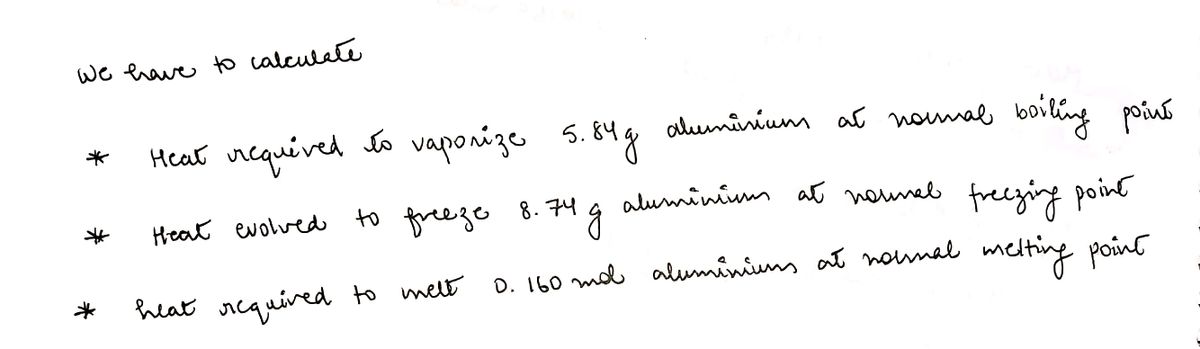 We have to calculate
* Heat required to vaporize 5.84g aluminium at normal boiling point
* Heat evolved to freeze 8.74 g aluminium at normal freezing point
* heat required to melt 0.160 mol aluminium at normal melting point